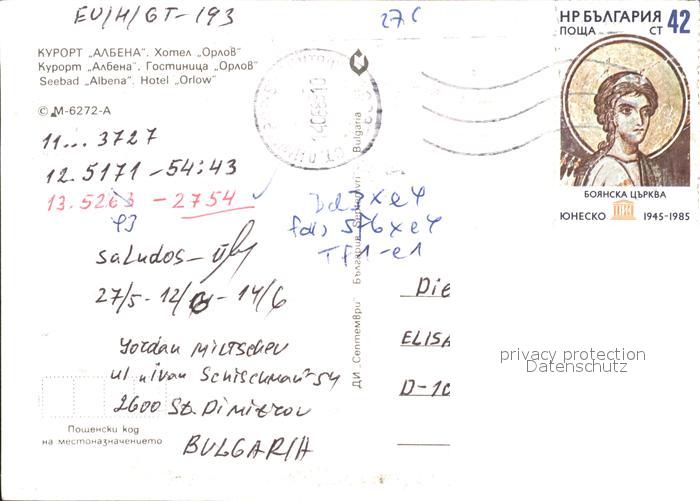 EU/H/GT-193
27 C
НР БЪЛГАРИЯ 42
ПОЩА СТ
КУРОРТ „АЛБЕНА". Хотел „Орлов"
Курорт „Албена". Гостиница „Орлов"
Seebad „Albena". Hotel „Orlow"
© М-6272-А
11... 3727
12. 5171 - 54:43
13. 5263 - 2754
43
xe4
fd1 5f6xe4
Tf1-e1
saludos -
27/5 - 12/6 - 14/6
Yordan Miltschev
ul. Ivan Schischman 54
2600 St. Dimitrov
BULGARIA
Пощенски код
на местоназначението
ДИ „Септември" България Septemvri Bulgaria
БОЯНСКА ЦЪРКВА
ЮНЕСКО 1945-1985
Die
ELISA
D-10
privacy protection
Datenschutz